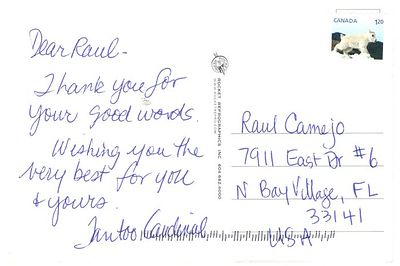 CANADA 1.20
Dear Raul-
Thank you for
your good words.
Wishing you the
very best for you
& yours.
Tantoo Cardinal
Raul Camejo
7911 East Dr #6
N Bay Village, FL
33141
USA